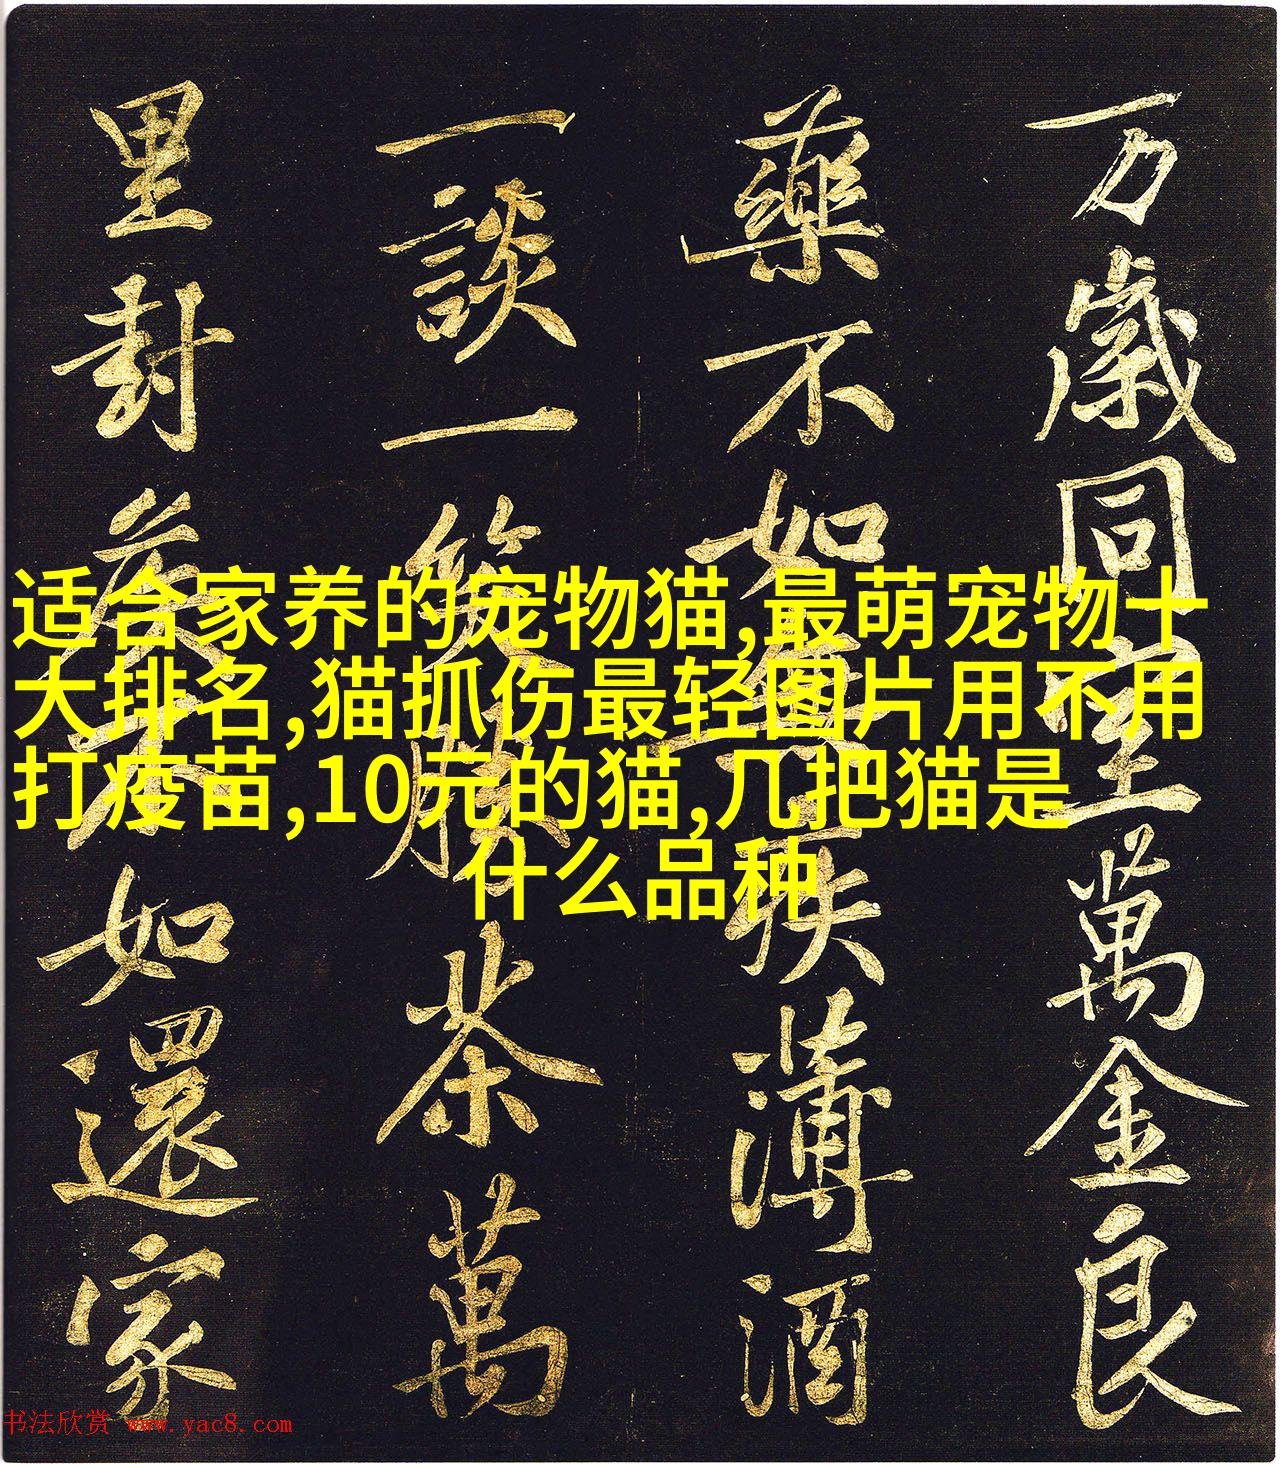 万岁同坚萬金良
藥不如無疾薄酒
一談一笑勝茶萬
里封矦不如還家
适合家养的宠物猫,最萌宠物十
大排名,猫抓伤最轻图片用不用
打疫苗,10元的猫,几把猫是
什么品种
书法欣赏 www.yac8.com